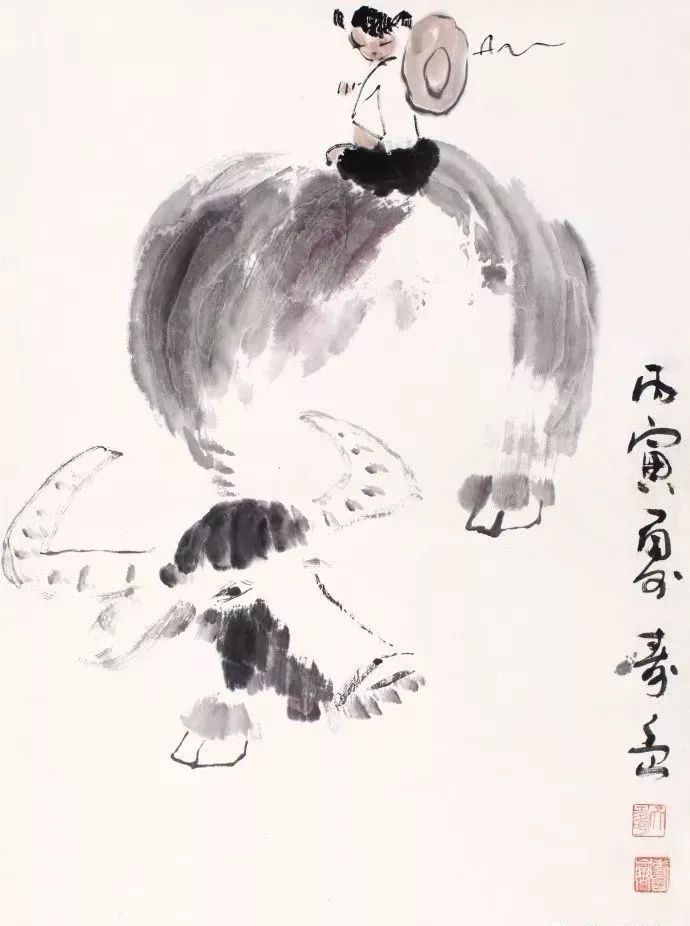 丙寅夏寿谷